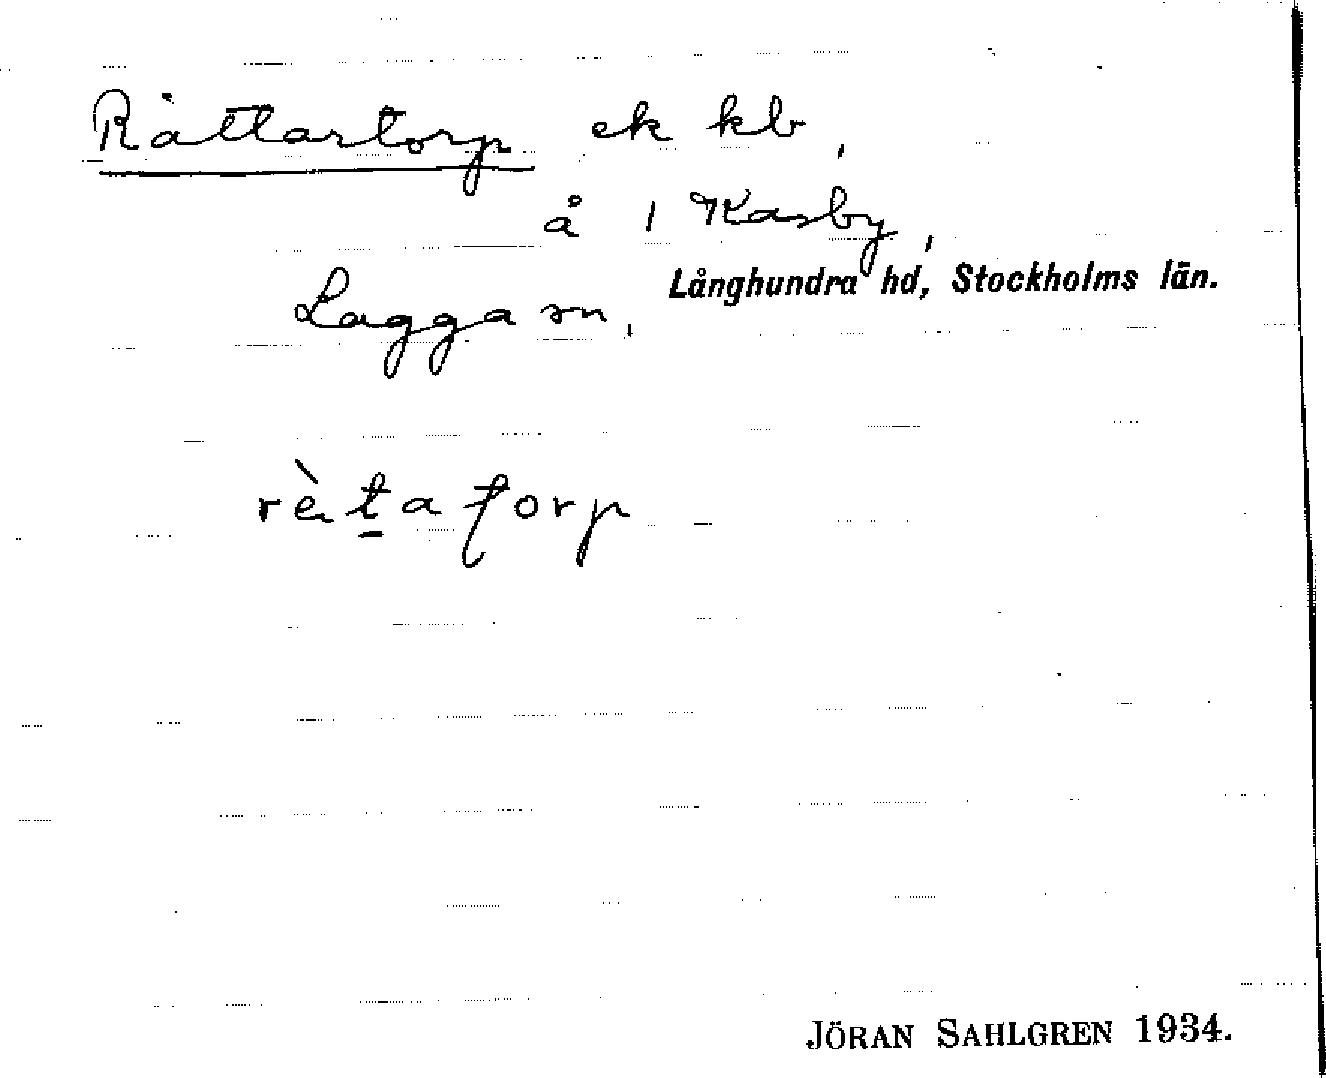 Råttartorp ek kb,
å 1 Kasby,
Lagga sn, Långhundra hd, Stockholms län.
JÖRAN SAHLGREN 1934.